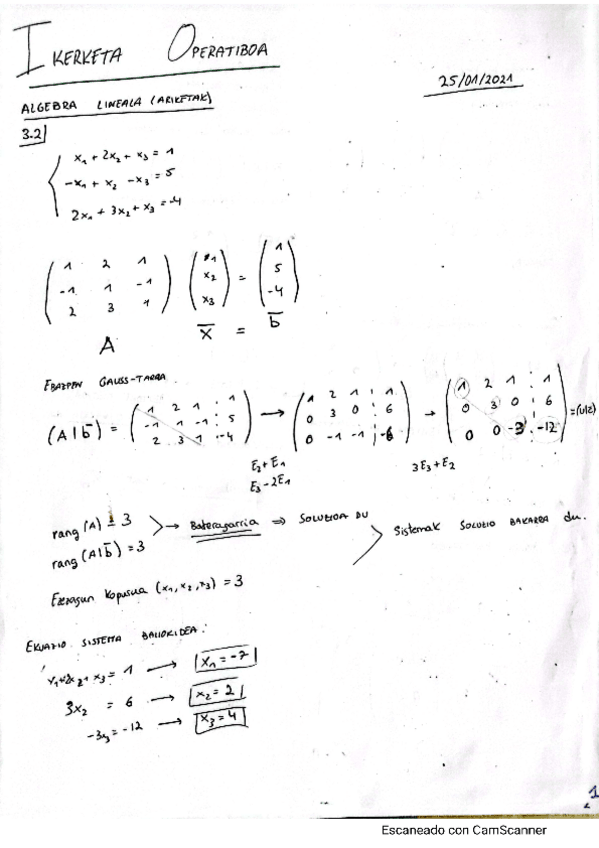 IKERKETA OPERATIBOA
25/01/2021
ALGEBRA LINEALA (ARIKETAK)
3.2
x₁ + 2x₂ + x₃ = 1
-x₁ + x₂ - x₃ = 5
2x₁ + 3x₂ + x₃ = -4
( 1 2 1 ) ( x₁ ) ( 1 )
( -1 1 -1 ) ( x₂ ) = ( 5 )
( 2 3 1 ) ( x₃ ) ( -4 )
A x̄ = b̄
EBAZPEN GAUSS-TARRA
( 1 2 1 ⋮ 1 ) ( 1 2 1 ⋮ 1 ) ( 1 2 1 ⋮ 1 )
(A|b̄) = ( -1 1 -1 ⋮ 5 ) → ( 0 3 0 ⋮ 6 ) → ( 0 3 0 ⋮ 6 ) = (U|z)
( 2 3 1 ⋮ -4 ) ( 0 -1 -1 ⋮ -6 ) ( 0 0 -3 ⋮ -12 )
E₂+E₁
E₃-2E₁
3E₃+E₂
rang (A) = 3
rang (A|b̄) = 3
→ Bateragarria ⇒ SOLUZIOA DU
Sistemak SOLUZIO BAKARRA du.
Ezezagun kopurua (x₁, x₂, x₃) = 3
EKUAZIO SISTEMA BALIOKIDEA:
x₁+2x₂+x₃ = 1 → x₁ = -7
3x₂ = 6 → x₂ = 2
-3x₃ = -12 → x₃ = 4
1
Escaneado con CamScanner